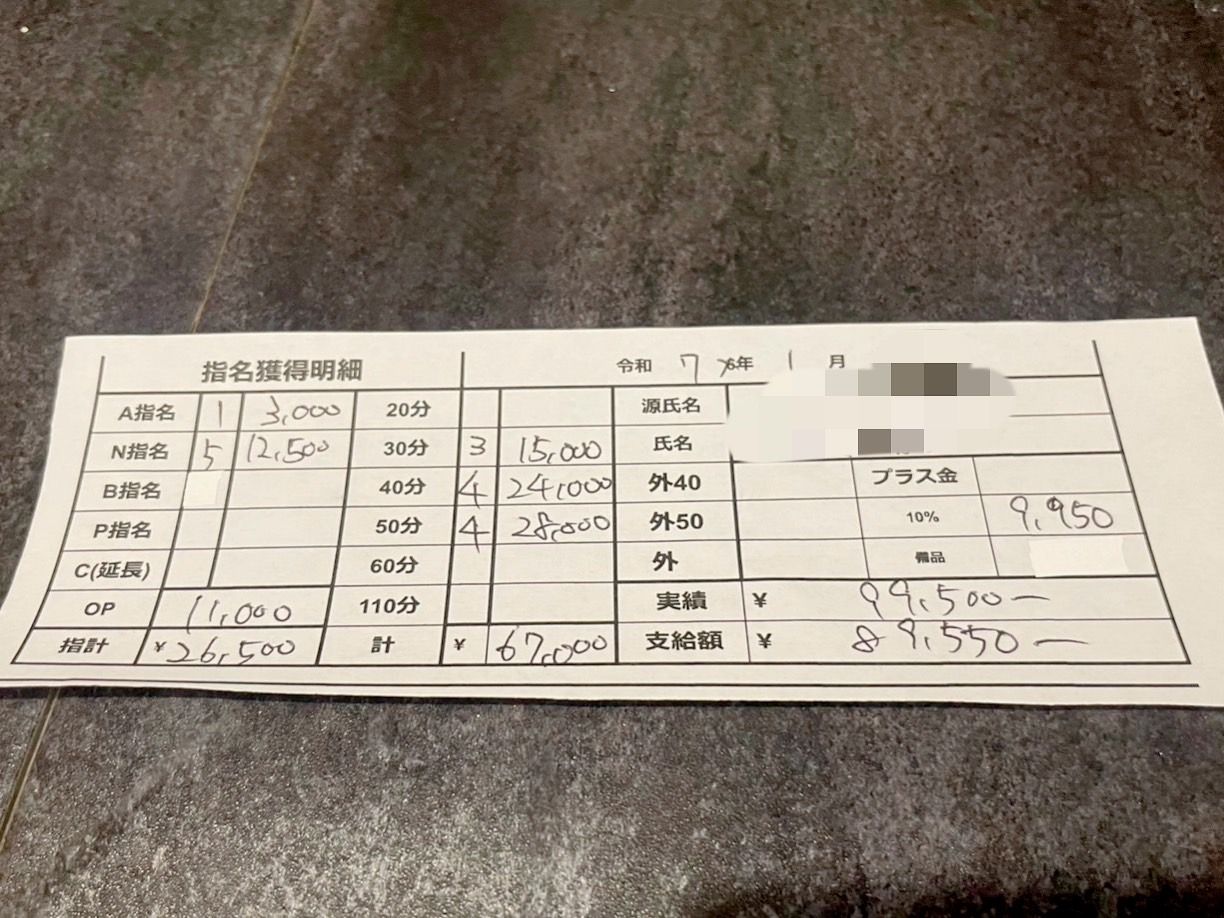 指名獲得明細 令和 7 6年 1 月
A指名 1 3,000 20分 源氏名
N指名 5 12,500 30分 3 15,000 氏名
B指名 40分 4 24,000 外40 プラス金
P指名 50分 4 28,000 外50 10% 9,950
C(延長) 60分 外 備品
OP 11,000 110分 実績 ¥ 99,500ー
指計 ¥26,500 計 ¥ 67,000 支給額 ¥ 89,550ー